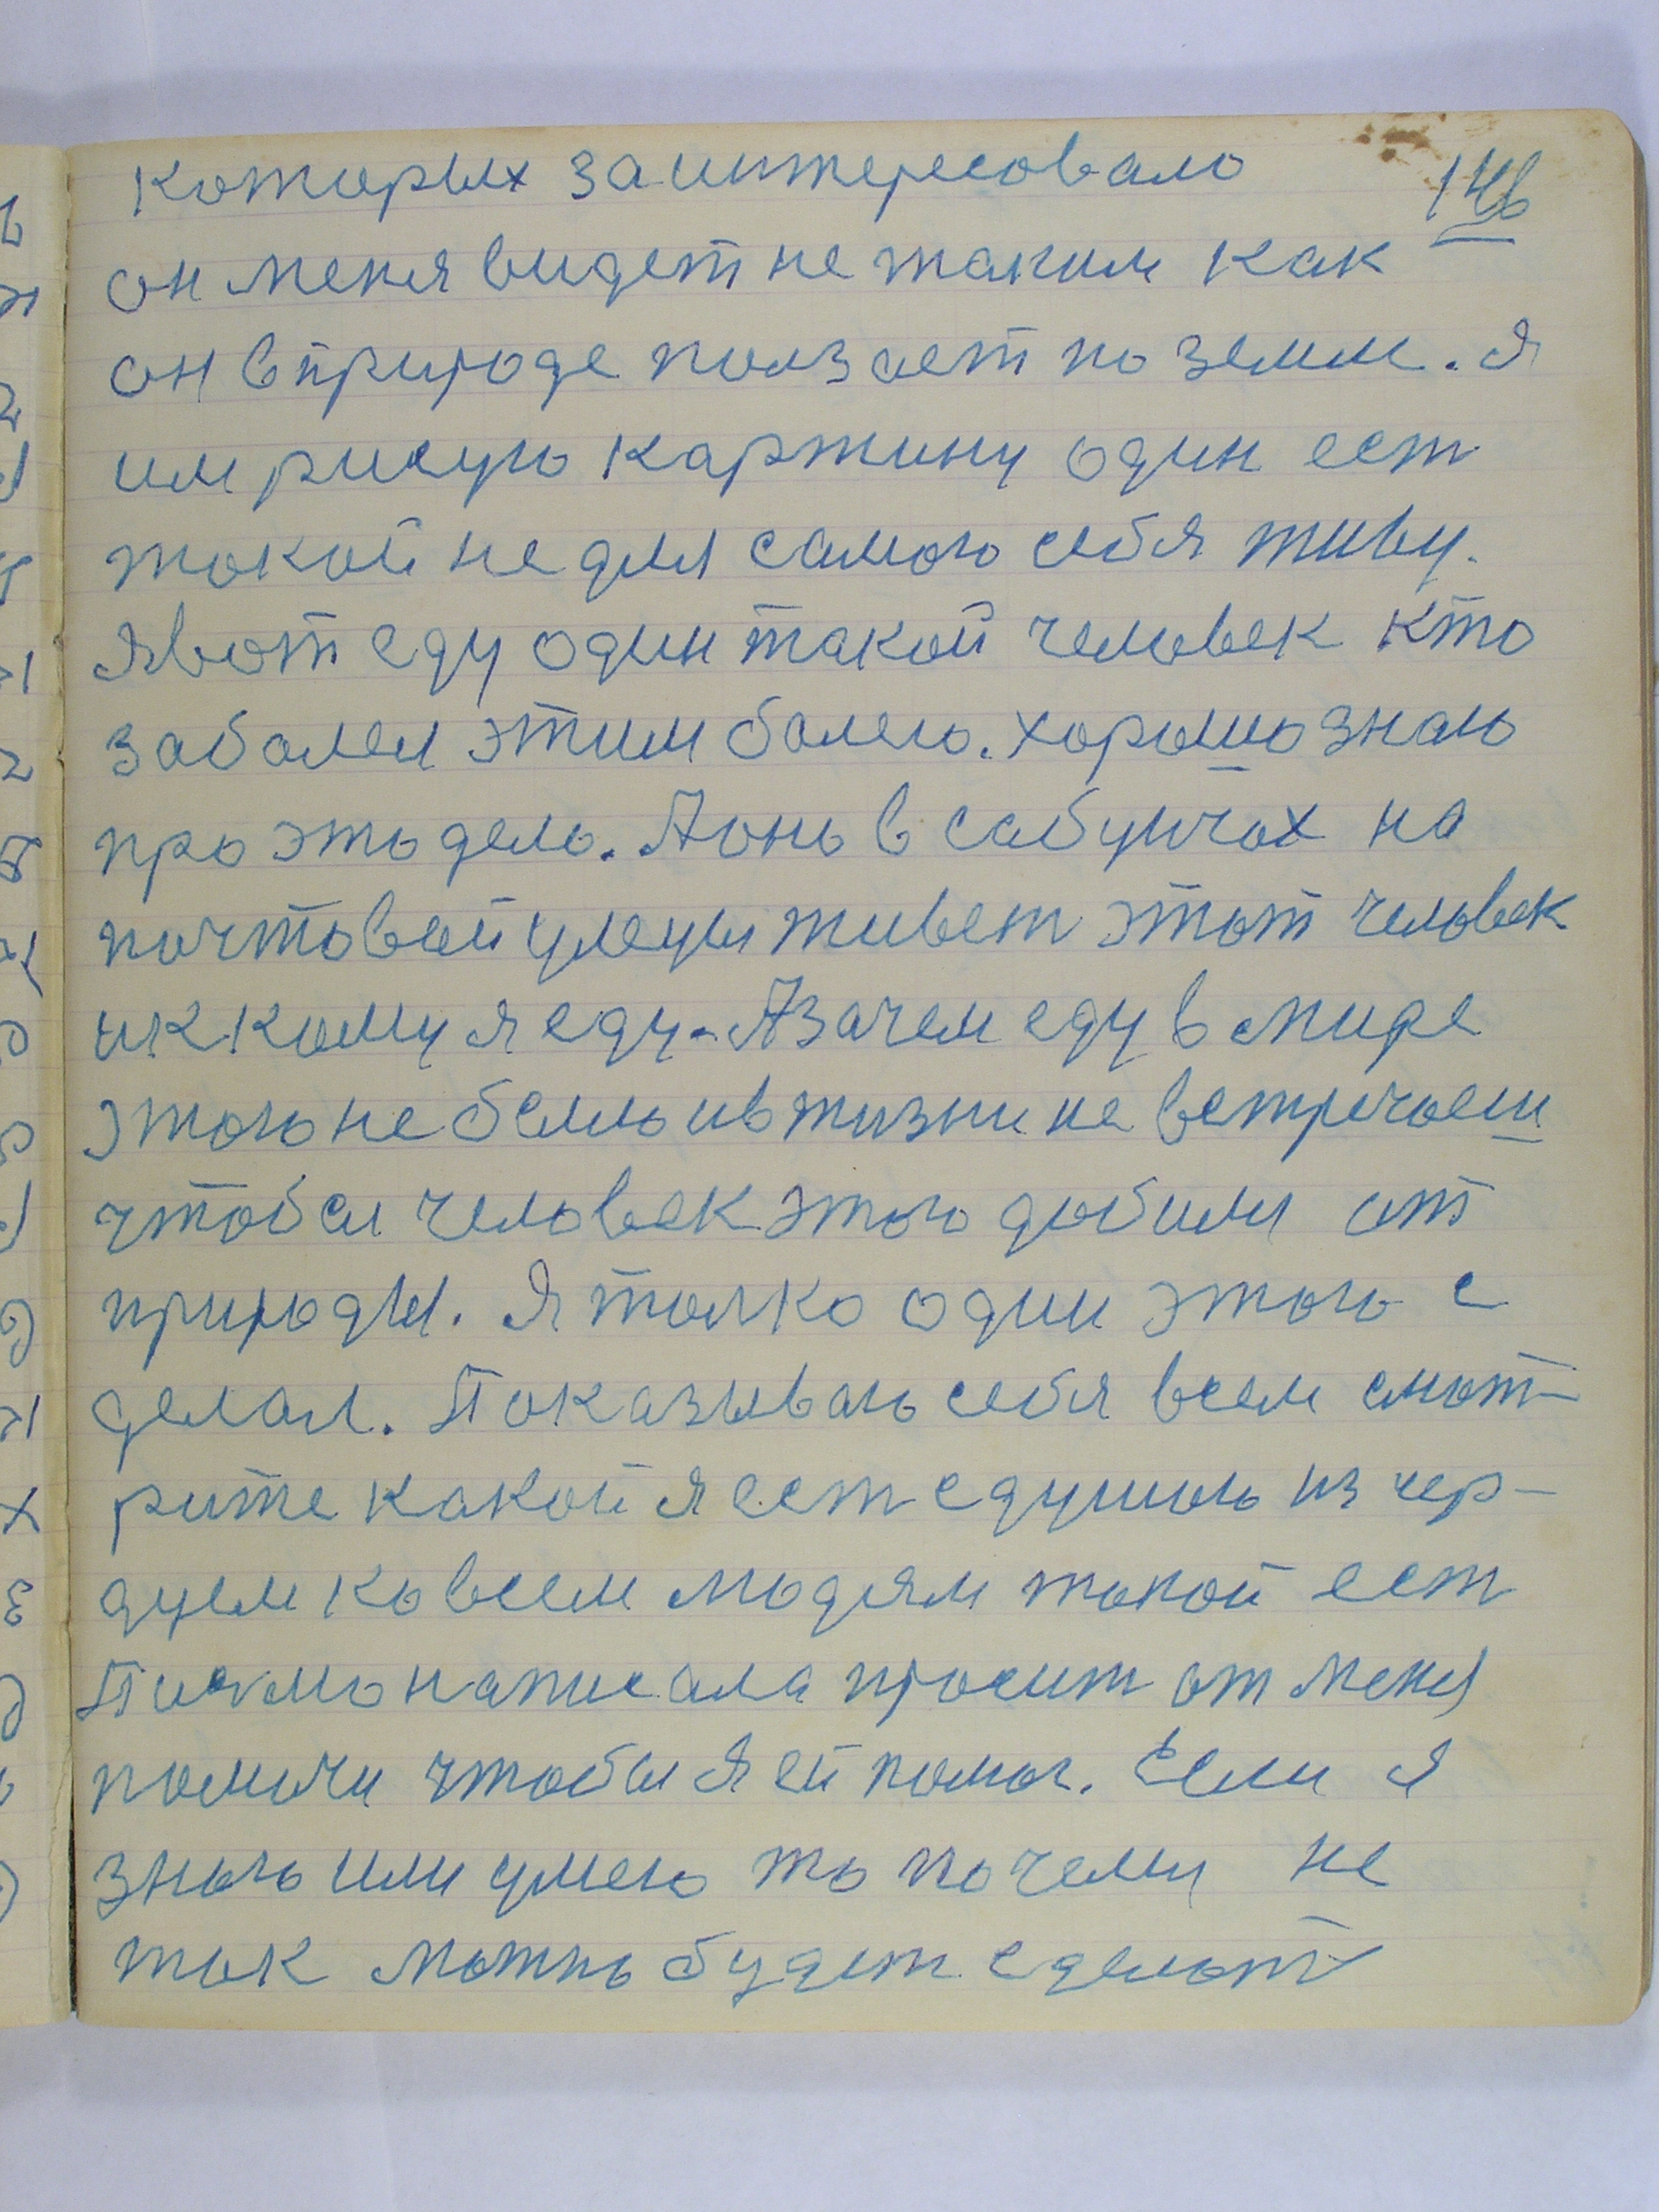 которых заинтересовало
146
он меня видет не таким как
он в природе ползает по земли. я
им рисую картину один ест
токой не для самого себя живу.
Я вот еду один такой человек кто
заболел этим болею. хорошо знаю
про это дело. А оно в сабунчах на
почтовой улецы живет этот человек
и к кому я еду. А зачем еду в мире
этого не было и в жизни не встречаеш
чтобы человек этого добился от
природы. Я толко один этого с
делал. Показываю себя всем смот-
рите какой я ест с душою из сер-
дцем ко всем людям токой ест
Письмо написала просит от меня
помочи чтобы я ей помог. Если я
знаю или умею то почему не
так можно будет сделат